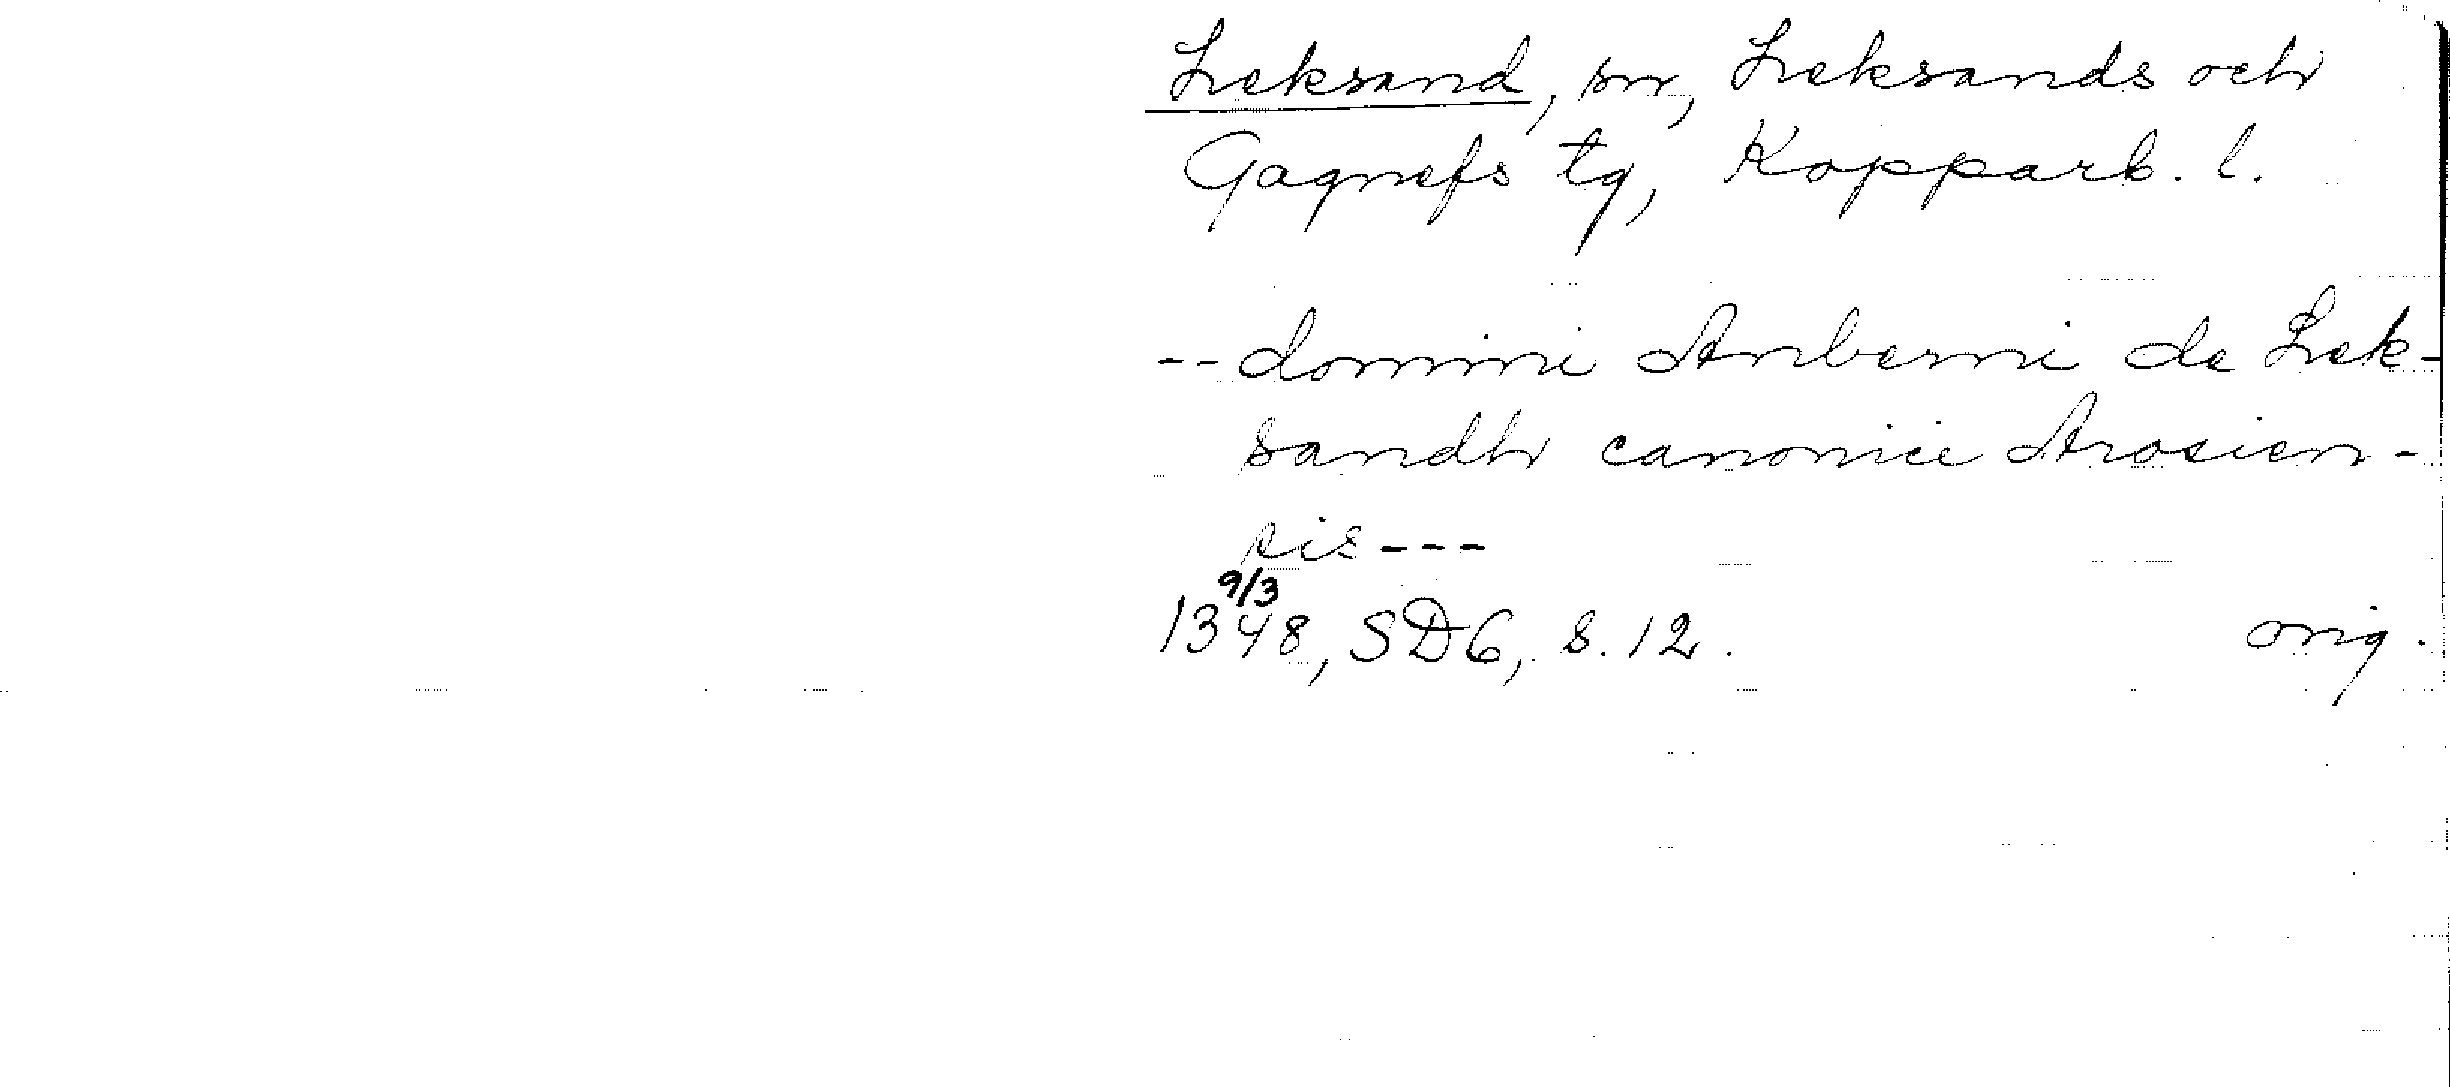 Leksand, sn, Leksands och
Gagnefs tg, Kopparb. l.
-- domini Anberni de Lek-
sandh canonici Arosien-
sis ---
9/3
1348, SD6, s. 12. orig.